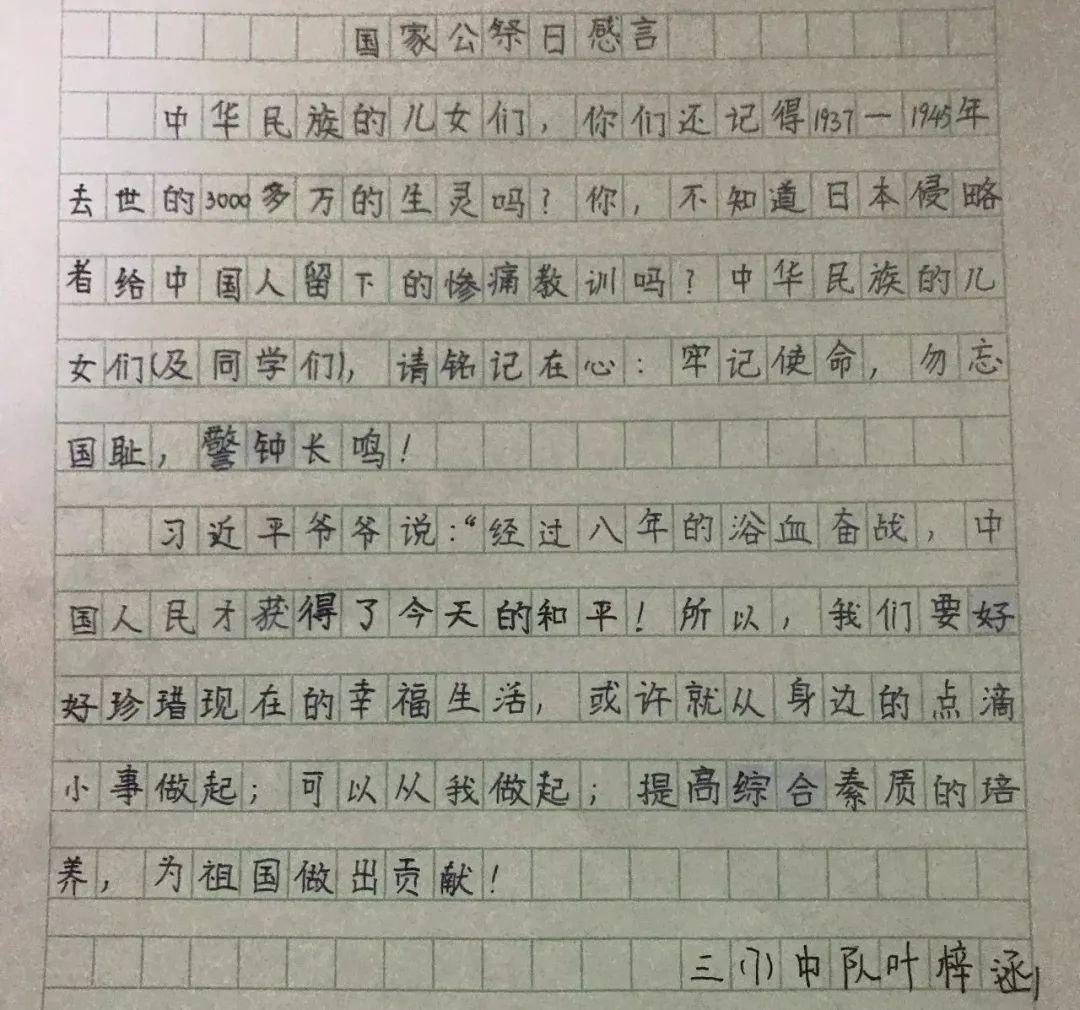 国家公祭日感言
中华民族的儿女们，你们还记得1937一1945年
去世的3000多万的生灵吗？你，不知道日本侵略
者给中国人留下的惨痛教训吗？中华民族的儿
女们(及同学们)，请铭记在心：牢记使命，勿忘
国耻，警钟长鸣！
习近平爷爷说：“经过八年的浴血奋战，中
国人民才获得了今天的和平！所以，我们要好
好珍惜现在的幸福生活，或许就从身边的点滴
小事做起；可以从我做起；提高综合素质的培
养，为祖国做出贡献！
三(1)中队叶梓涵